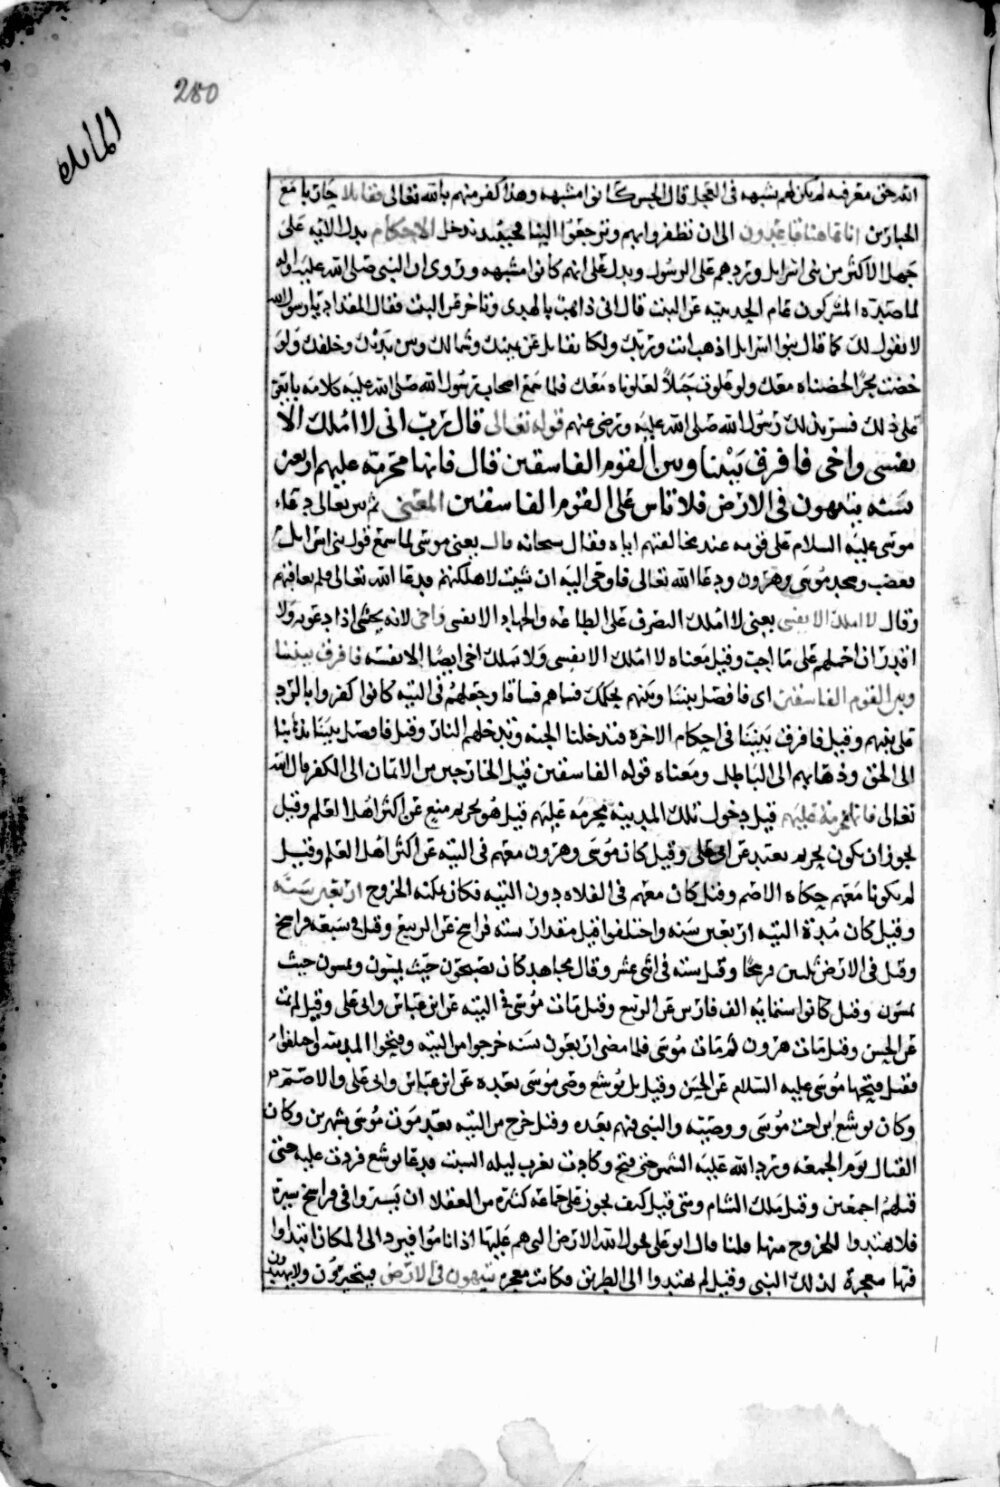 280
المائدة
الله حق معرفته لم يكن لهم شبهه في العجل قال الحسن كانوا مشبهه وهذا كفر منهم بالله تعالى فقاتلا يا مع
الجبارين انا هاهنا قاعدون الى ان تظفروا بهم وترجعوا الينا فحينئذ ندخل الاحكام يدل الايه على
جهل الاكثر من بني اسرايل وتردهم على الرسول ويدل على انهم كانوا مشبهه وروي ان النبي صلى الله عليه واله
لما صده المشركون عام الحديبيه عن البيت قال اني ذاهب بالهدي وناحر عن البيت فقال المقداد يا رسول الله
لا نقول لك كما قال بنوا اسرايل اذهب انت وربك ولكنا نقاتل عن يمينك وشمالك ومن بين يديك وخلفك ولو
خضت بحرا لخضناه معك ولو علوت جبلا لعلوناه معك فلما سمع اصحاب رسول الله صلى الله عليه كلامه بايعوا
على ذلك فسر بذلك رسول الله صلى الله عليه ورضي عنهم قوله تعالى قال رب اني لا املك الا
نفسي واخي فافرق بيننا وبين القوم الفاسقين قال فانها محرمة عليهم اربعين
سنه يتيهون في الارض فلا تاس على القوم الفاسقين المعنى ثم بين تعالى دعاء
موسى عليه السلام على قومه عند مخالفتهم اياه فقال سبحانه قال يعني موسى لما سمع قول بني اسرايل
فغضب وسجد موسى وهرون ودعا الله تعالى فاوحى اليه ان شيت لاهلكنهم فدعا الله تعالى فلم يعاقبهم
وقال لا املك الا نفسي يعني لا املك التصرف على الطاعه والجهاد الا نفسي واخي لانه يجيبني اذا دعوته ولا
اقدر ان احملهم على ما احب وقيل معناه لا املك الا نفسي ولا يملك اخي ايضا الا نفسه فافرق بيننا
وبين القوم الفاسقين اي فافصل بيننا وبينهم بحكمك فسماهم فساقا وجعلهم في التيه كانوا كفروا بالرد
على نبيهم وقيل فافرق بيننا في احكام الاخره فتدخلنا الجنه وتدخلهم النار وقيل فافصل بيننا بذهابنا
الى الحق وذهابهم الى الباطل ومعناه قوله الفاسقين قيل الخارجين من الايمان الى الكفر قال الله
تعالى فانها محرمة عليهم قيل دخول تلك المدينة محرمة عليهم قيل هو تحريم منع عن اكثر اهل العلم وقيل
يجوز ان يكون تحريم تعبد عن ابي علي وقيل كان موسى وهرون معهم في التيه عن اكثر اهل العلم وقيل
لم يكونا معهم حكاه الاصم وقيل كان معهم في الفلاه دون التيه فكان يمكنه الخروج اربعين سنة
وقيل كان مدة التيه اربعين سنه واختلفوا قيل مقدار سته فراسخ عن الربيع وقيل في سبعه فراسخ
وقيل في الارض ثلثين فرسخا وقيل سته في اثني عشر وقال مجاهد كان يصبحون حيث يمسون ويمسون حيث
يمسون وقيل كانوا ستمايه الف فارس عن الربيع وقيل مات موسى في التيه عن ابن عباس وابي علي وقيل لم يمت
عن الحسن وقيل مات هرون ثم مات موسى فلما مضى اربعون سنه خرجوا من التيه وفتحوا المدينه واختلفوا
فقيل فتحها موسى عليه السلام عن الحسن وقيل بل يوشع وصي موسى بعده عن ابن عباس وابي علي والاصم
وكان يوشع ابن اخت موسى ووصيته والنبي فيهم بعده وقيل خرج من التيه بعد موت موسى بشهرين وكان
القتال يوم الجمعه ورد الله عليه الشمس حتى فتح وكادت تغرب ليله السبت فدعا يوشع فردت عليه حتى
قتلهم اجمعين وقيل ملك الشام ومتى قيل كيف يجوز على جماعه كثيره من العقلا ان يسيروا في فراسخ يسيره
فلا يهتدوا للخروج منها قلنا قال ابو علي يحول الله الارض التي هم عليها اذا ناموا فيرد الى المكان ابتدؤا
فيها معجزة لذلك النبي وقيل لم يهتدوا الى الطريق فكانت معجزه يتيهون في الارض يتحيرون ولا يهتدون